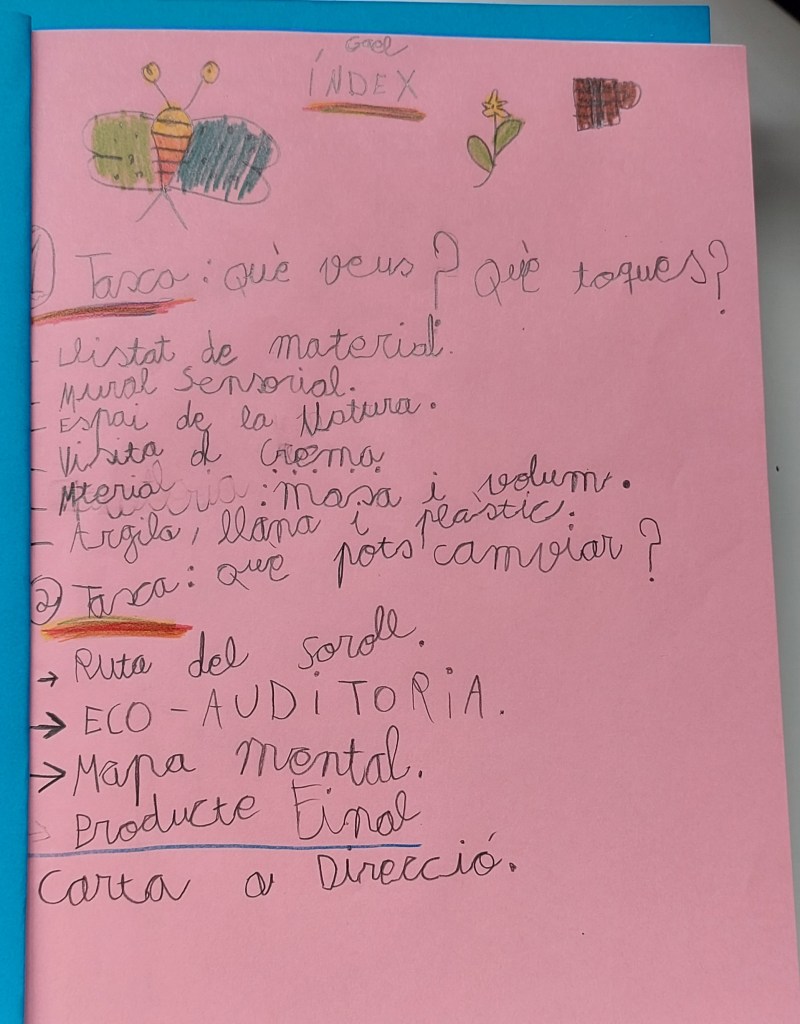 Gael
ÍNDEX
1 Tasca: què veus? Què toques?
- Llistat de material.
- Mural Sensorial.
- Espai de la Natura.
- Visita d Crema
- Mterial: masa i volum.
- Argila, llana i plàstic.
2 Tasca: què pots camviar?
→ Ruta del soroll.
→ ECO-AUDiTORiA.
→ Mapa mental.
→ Producte Final
Carta a Direcció.